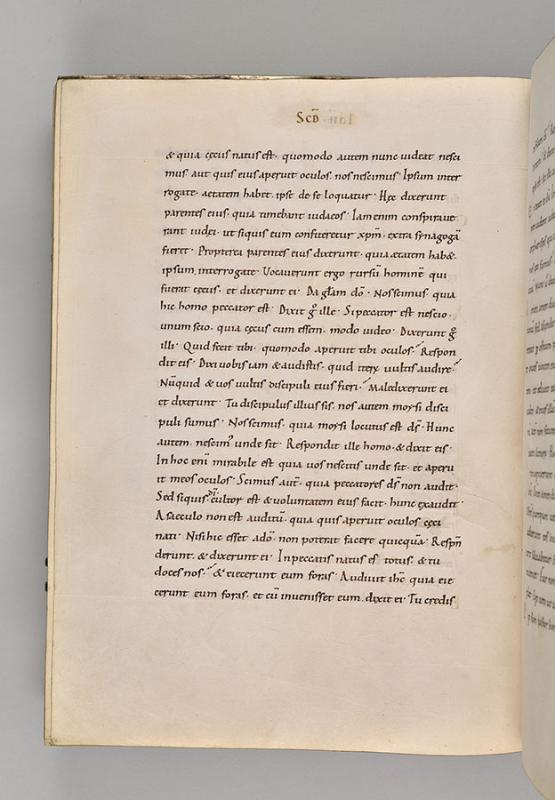 SCD̄
& quia cęcus natus est. quomodo autem nunc uideat nesci
mus aut quis eius aperuit oculos. nos nescimus. Ipsum inter
rogate. aetatem habet. ipse de se loquatur. Hęc dixerunt
parentes eius. quia timebant iudaeos. Iam enim conspirauer
rant iudęi. ut siquis eum confiteretur xp̄m. extra synagogā
fieret. Propterea parentes eius dixerunt. quia ætatem hab&.
ipsum interrogate. Uocauerunt ergo rursū hominē qui
fuerat cęcus. et dixerunt ei. Da gl̄am dō. Nos scimus. quia
hic homo peccator est. Dixit g̊ ille. Si peccator est nescio.
unum scio. quia cęcus cum essem. modo video. Dixerunt g̊
illi. Quid fecit tibi. quomodo aperuit tibi oculos. Respon
dit eis. Dixi uobis iam & audistis. quid iterū uultis audire.
Nūquid & uos uultis discipuli eius fieri. Maledixerunt ei
et dixerunt. Tu discipulus illius sis. nos autem moysi disci
puli sumus. Nos scimus. quia moysi locutus est d̄s. Hunc
autem nescimꝰ unde sit. Respondit ille homo. & dixit eis.
In hoc enī mirabile est quia uos nescitis unde sit. et aperu
it meos oculos. Scimus aūt. quia peccatores d̄s non audit.
Sed siquis dī cultor est & voluntatem eius facit. hunc exaudit.
A saeculo non est auditū. quia quis aperuit oculos cęci
nati. Nisi hic esset a dō. non poterat facere quicquā. Respn̄
derunt. & dixerunt ei. In peccatis natus es totus. & tu
doces nos. & eiecerunt eum foras. Audiuit ihc̄ quia eie
cerunt eum foras. et cū invenisset eum. dixit ei. Tu credis